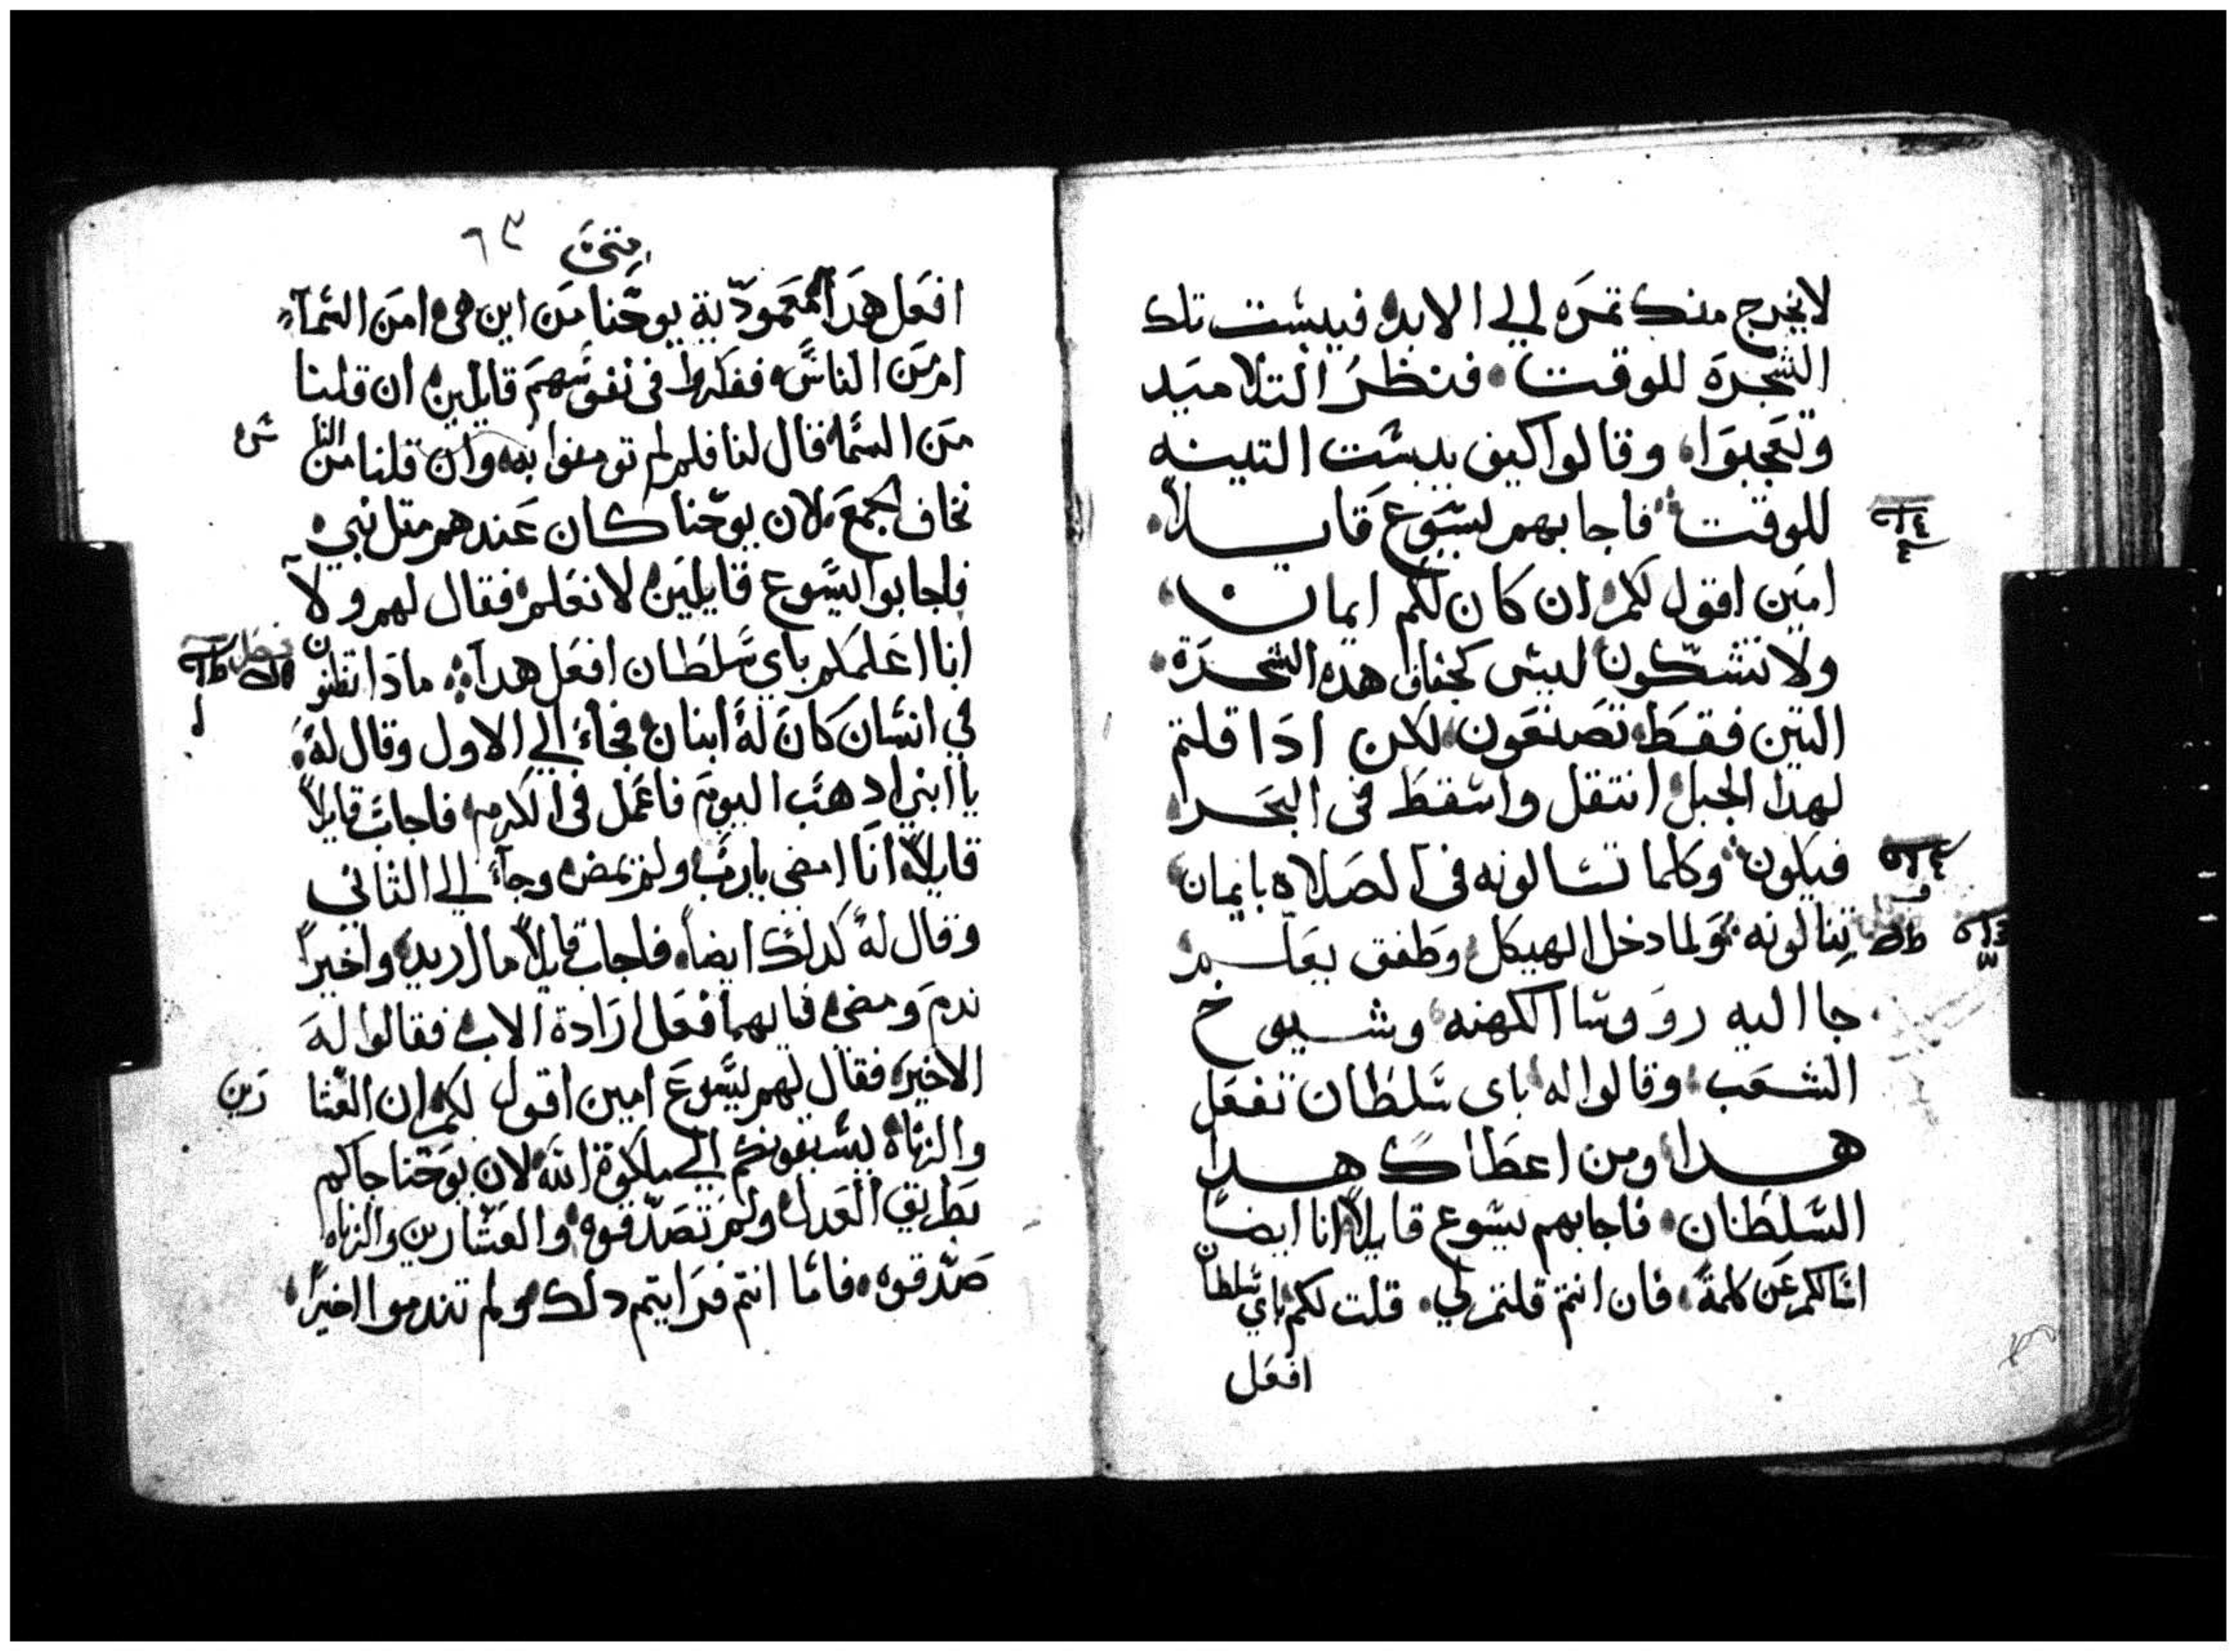 لا يخرج منك تمره الي الابد فيبست تلك
الشجرة للوقت فنظر التلاميد
وتعجبوا وقالوا كيف يبست التينه
للوقت فاجابهم يسوع قايلاً
امين اقول لكم ان كان لكم ايمان
ولا تشكون ليس كجفاف هده الشجرة
التين فقط تصنعون لكن ادا قلتم
لهدا الجبل انتقل واسقط في البحر
فيكون وكلما تسالونه في الصلاه بايمان
تنالونه ولما دخل الهيكل وطفق يعلم
جا اليه رووسا الكهنه وشيوخ
الشعب وقالوا له باى سلطان تفعل
هدا ومن اعطاك هدا
السلطان فاجابهم يسوع قايلاً انا ايضاً
اسالكم عن كلمة فان انتم قلتم لي قلت لكم باي سلطان
افعل
متى ٦٣
افعل هدا معمودية يوحنا من اين هى امن السمآء
امن الناس ففكروا فى نفوسهم قايلين ان قلنا
من السما قال لنا فلم لم تومنوا به وان قلنا من النا س
نخاف الجمع لان يوحنا كان عندهم متل نبي
فاجابوا ليسوع قايلين لا نعلم فقال لهم ولا
انا اعلمكم باي سلطان افعل هدا مادا تظنون
في انسان كان له ابنان فجاء الي الاول وقال له
يا ابني ادهب اليوم فاعمل في الكرم فاجاب قايلاً
قايلاً انا امضي يارب ولم يمض وجآء الي الثاني
وقال له كدلك ايضاً فاجاب قايلاً ما اريد واخيراً
ندم ومضى فايهما فعل ارادة الاب فقالوا له
الاخير فقال لهم يسوع امين اقول لكم ان العشا رين
والزناه يسبقونكم الي ملكوة الله لان يوحنا جاكم
بطريق العدل ولم تصدقوه والعشارين والزناه
صدقوه فاما انتم فرايتم دلك ولم تندموا اخيراً